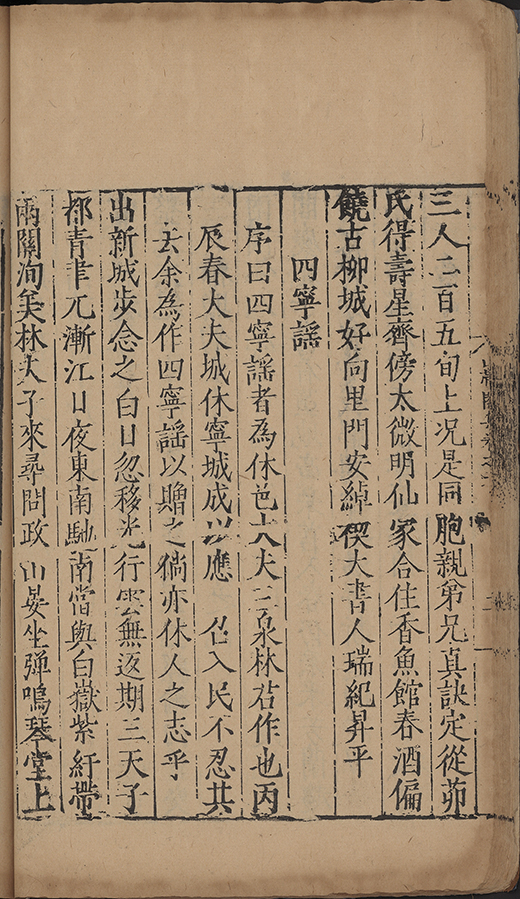 三人二百五旬上况是同胞親弟兄真訣定從茆
氏得壽星齊傍太微明仙家合住香魚館春酒偏
饒古柳城好向里門安綽楔大書人瑞紀昇平
四寧謡
序曰四寧謡者為休邑大夫三泉林君作也丙
辰春大夫城休寧城成以應召入民不忍其
去余為作四寧謡以贈之倘亦休人之志乎
出新城步念之白日忽移光行雲無返期三天子
都青芈兀漸江日夜東南馳南當與白嶽紫紆帶
兩關洵美林夫子來尋問政山晏坐弹鳴琴堂上